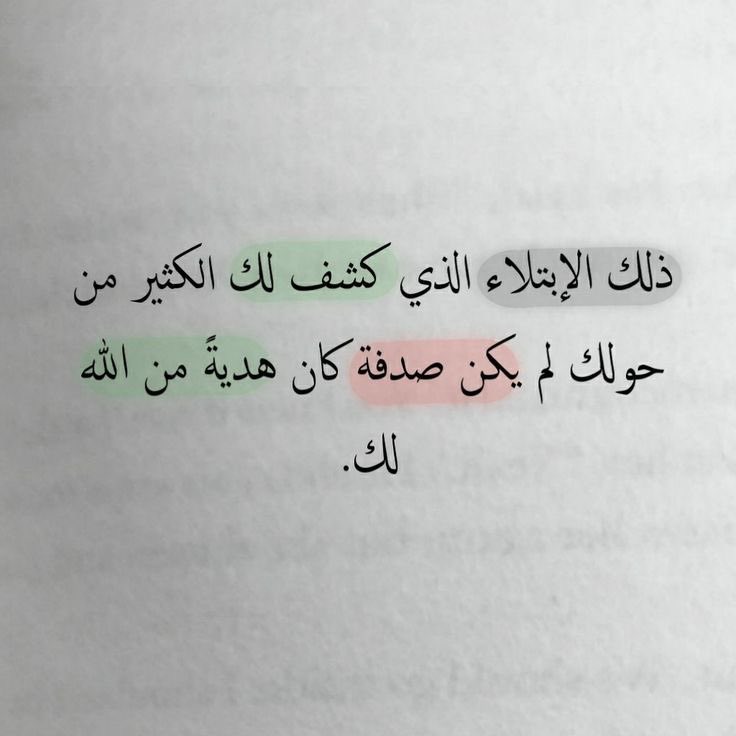 ذلك الإبتلاء الذي كشف لك الكثير من
حولك لم يكن صدفة كان هديةً من الله
لك.